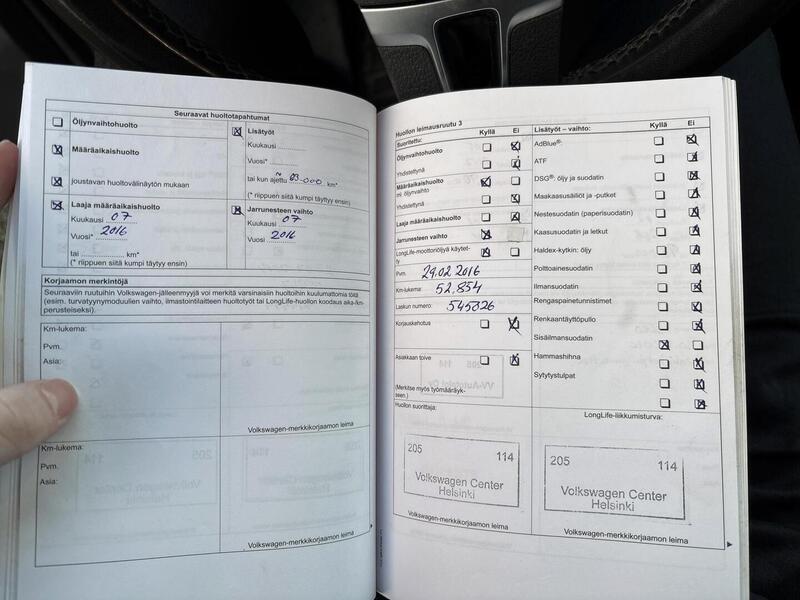 Seuraavat huoltotapahtumat
Öljynvaihtohuolto
Määräaikaishuolto
joustavan huoltovälinäytön mukaan
Laaja määräaikaishuolto
Kuukausi 07
2016
Vuosi*
tai ........... km*
(* riippuen siitä kumpi täyttyy ensin)
Lisätyöt
Kuukausi
Vuosi*
tai kun ajettu 83.000 km*
(* riippuen siitä kumpi täyttyy ensin)
Jarrunesteen vaihto
Kuukausi 07
Vuosi 2016
Korjaamon merkintöjä
Seuraaviin ruutuihin Volkswagen-jälleenmyyjä voi merkitä varsinaisiin huoltoihin kuulumattomia töitä
(esim. turvatyynymoduulien vaihto, ilmastointilaitteen huoltotyöt tai LongLife-huollon koodaus aika-/km-
perusteiseksi).
Km-lukema:
Pvm.
Asia:
Volkswagen-merkkikorjaamon leima
Km-lukema:
Pvm.
Asia:
Volkswagen-merkkikorjaamon leima
Huollon leimausruutu 3
Suoritettu: Kyllä Ei
Öljynvaihtohuolto
Yhdistettynä
Määräaikaishuolto
ml. öljynvaihto
Yhdistettynä
Laaja määräaikaishuolto
Jarrunesteen vaihto
LongLife-moottoriöljyä käytet-
ty
Pvm. 29.02 2016
Km-lukema: 52.854
Laskun numero: 545326
Korjauskehotus
Asiakkaan toive
(Merkitse myös työmääräyk-
seen.)
Huollon suorittaja:
205 114
Volkswagen Center
Helsinki
Volkswagen-merkkikorjaamon leima
Lisätyöt – vaihto: Kyllä Ei
AdBlue®:
ATF
DSG®: öljy ja suodatin
Maakaasusäiliöt ja -putket
Nestesuodatin (paperisuodatin)
Kaasusuodatin ja letkut
Haldex-kytkin: öljy
Polttoainesuodatin
Ilmansuodatin
Rengaspainetunnistimet
Renkaantäyttöpullo
Sisäilmansuodatin
Hammashihna
Sytytystulpat
LongLife-liikkumisturva:
205 114
Volkswagen Center
Helsinki
Volkswagen-merkkikorjaamon leima